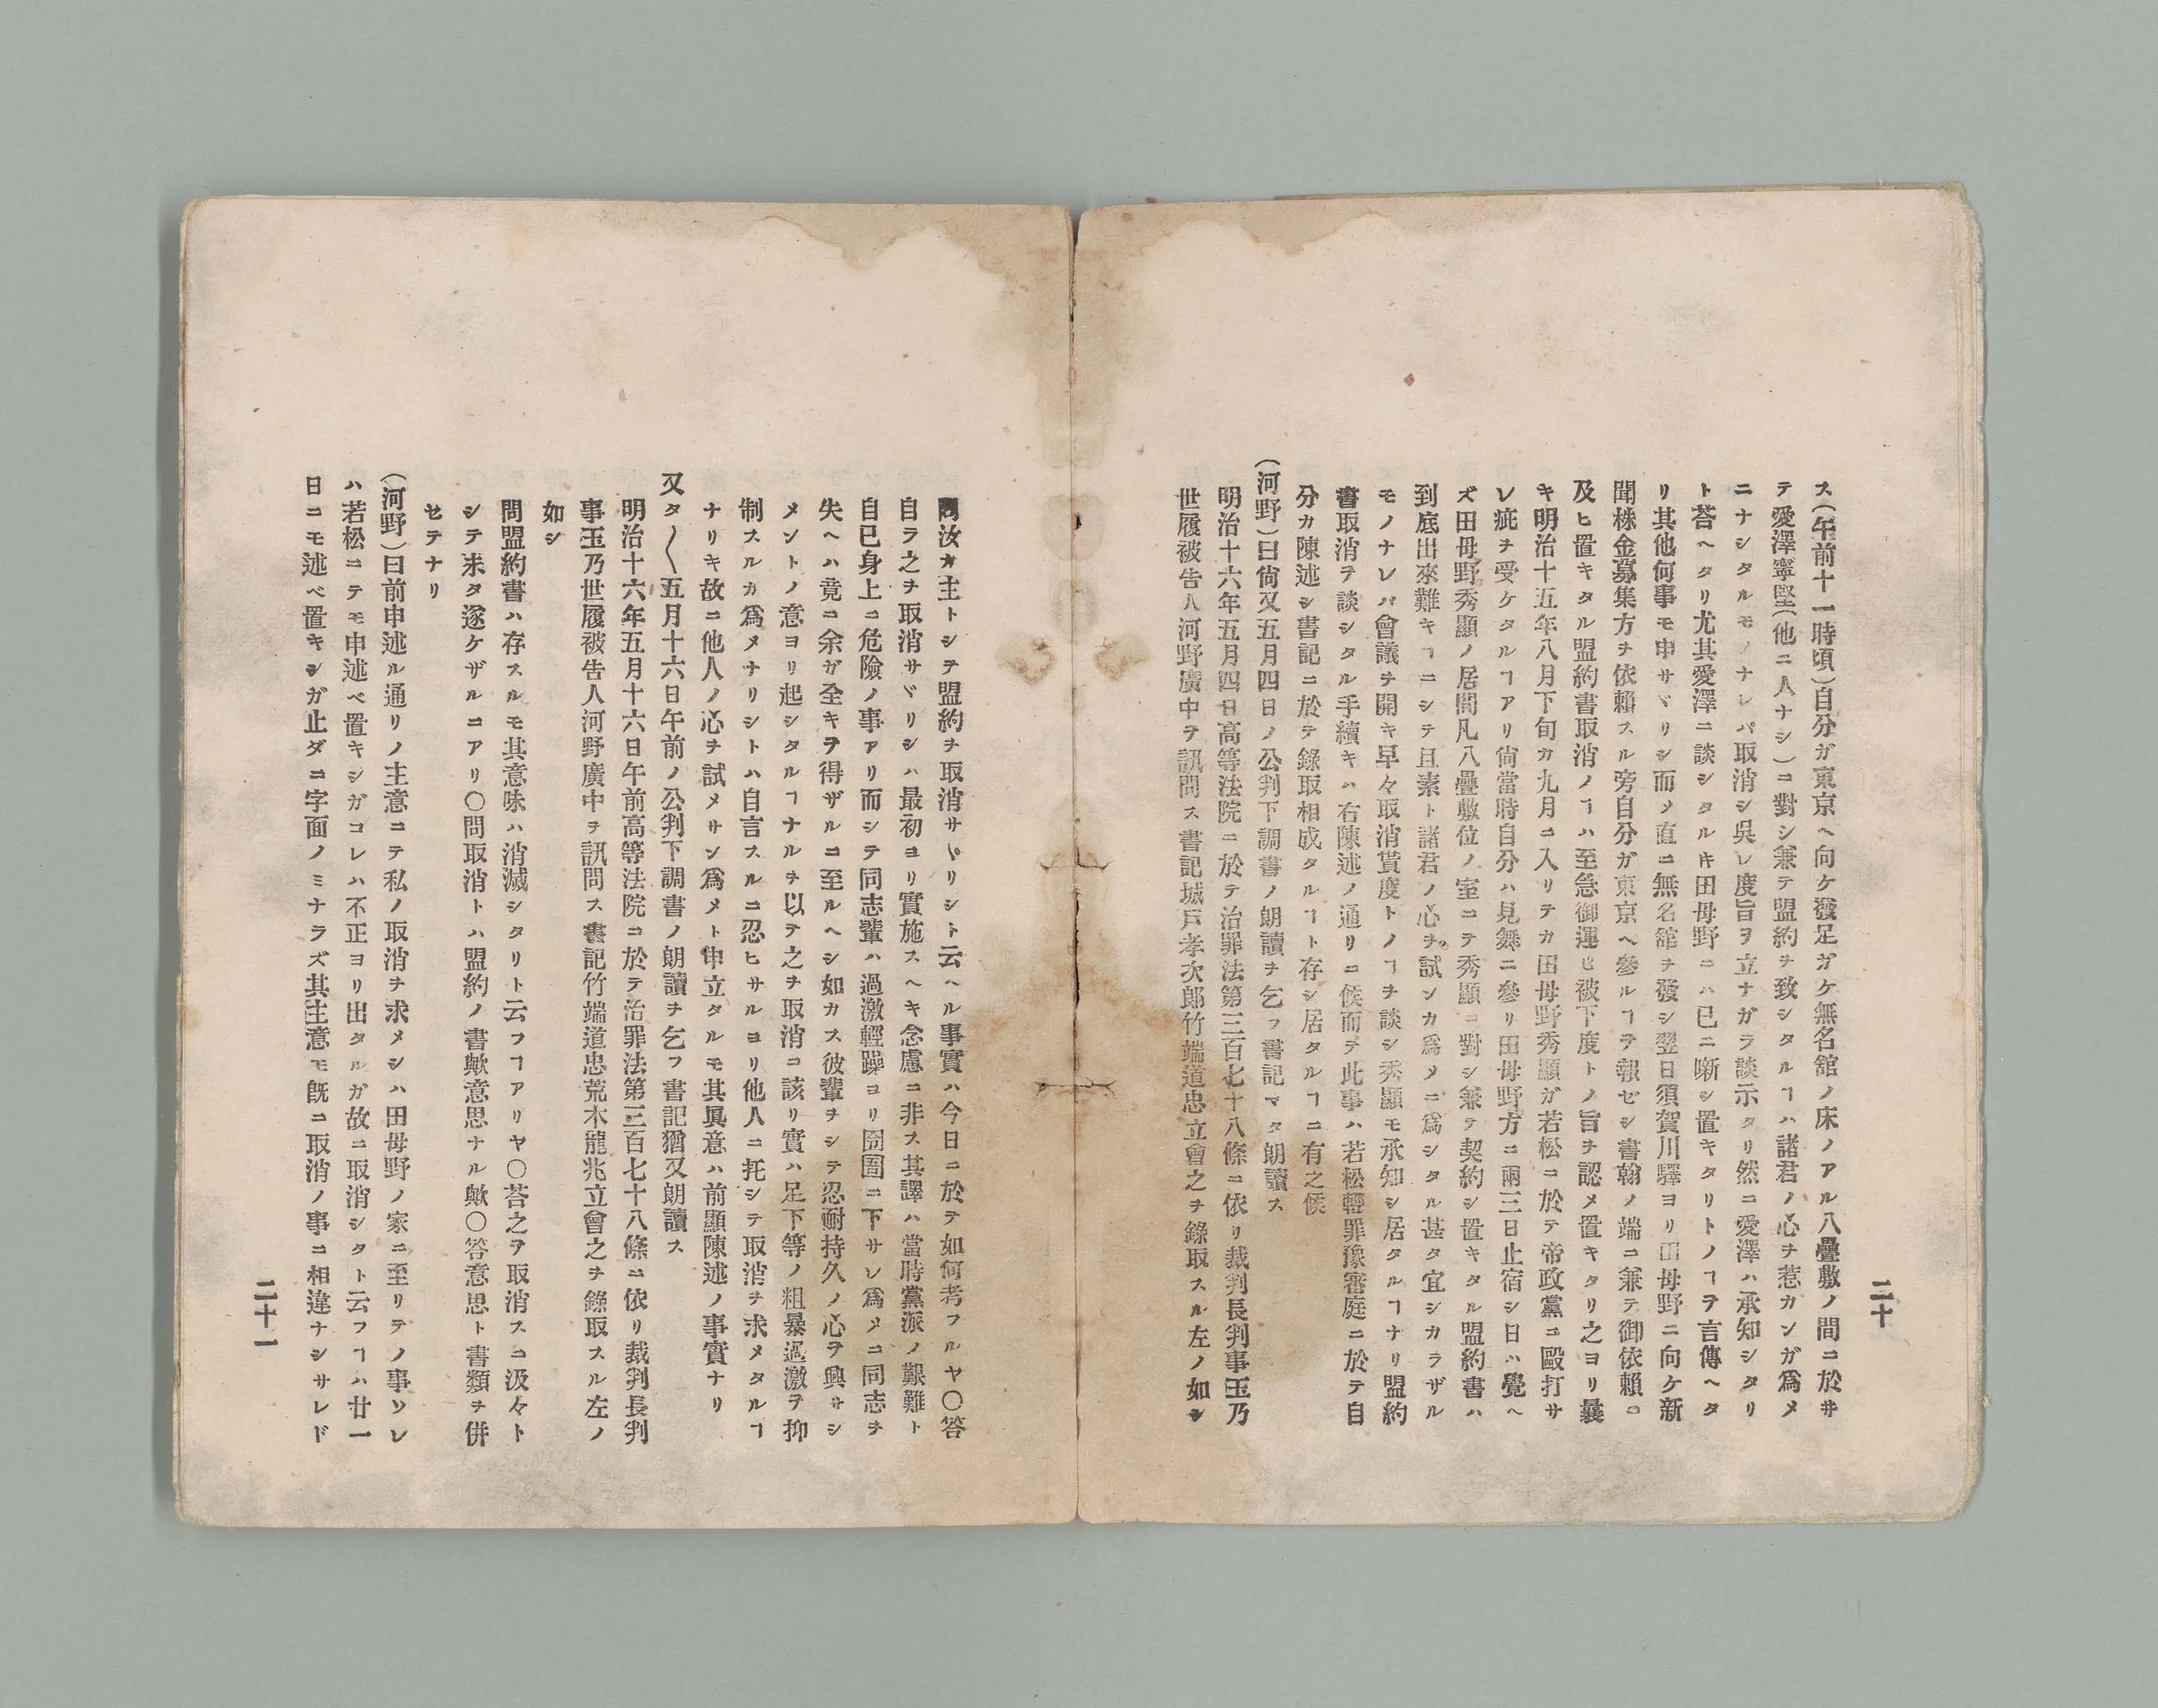 二十
ス(午前十一時頃)自分ガ東京ヘ向ケ發足ガケ無名舘ノ床ノアル八疊敷ノ間ニ於井
テ愛澤寧堅(他ニ人ナシ)ニ對シ兼テ盟約ヲ致シタルヿハ諸君ノ心ヲ惹カンガ爲メ
ニナシタルモノナレバ取消シ呉レ度旨ヲ立ナガラ談示タリ然ニ愛澤ハ承知シタリ
ト荅ヘタリ尤其愛澤ニ談シタルキ田母野ニハ已ニ噺シ置キタリトノヿヲ言傳ヘタ
リ其他何事モ申サヾリシ而メ直ニ無名舘ヲ發シ翌日須賀川驛ヨリ田母野ニ向ケ新
聞株金募集方ヲ依賴スル旁自分ガ東京ヘ參ルヿヲ報ゼシ書翰ノ端ニ兼テ御依賴ニ
及ヒ置キタル盟約書取消ノヿハ至急御運ヒ被下度トノ旨ヲ認メ置キタリ之ヨリ曩
キ明治十五年八月下旬カ九月ニ入リテカ田母野秀顯ガ若松ニ於テ帝政黨ニ毆打サ
レ疵ヲ受ケタルヿアリ尙當時自分ハ見舞ニ參リ田母野方ニ兩三日止宿シ日ハ覺ヘ
ズ田母野秀顯ノ居間凡八疊敷位ノ室ニテ秀顯ニ對シ兼テ契約シ置キタル盟約書ハ
到底出來難キヿニシテ且素ト諸君ノ心ヲ試ンカ爲メニ爲シタル甚タ宜シカラザル
モノナレバ會議ヲ開キ早々取消貰度トノヿヲ談シ秀顯モ承知シ居タルヿナリ盟約
書取消ヲ談シタル手續キハ右陳述ノ通リニ候而テ此事ハ若松輕罪豫審庭ニ於テ自
分カ陳述シ書記ニ於テ錄取相成タルヿト存シ居タルヿニ有之候
(河野)曰尙又五月四日ノ公判下調書ノ朗讀ヲ乞フ書記マタ朗讀ス
明治十六年五月四日高等法院ニ於テ治罪法第三百七十八條ニ依リ裁判長判事玉乃
世履被告人河野廣中ヲ訊問ス書記城戸孝次郎竹端道忠立會之ヲ錄取スル左ノ如シ
問汝カ主トシテ盟約ヲ取消サヾリシト云ヘル事實ハ今日ニ於テ如何考フルヤ〇答
自ラ之ヲ取消サヾリシハ最初ヨリ實施スヘキ念慮ニ非ス其譯ハ當時黨派ノ艱難ト
自已身上ニ危險ノ事アリ而シテ同志輩ハ過激輕躁ヨリ囹圄ニ下サレ爲メニ同志ヲ
失ヘハ竟ニ余ガ全キヲ得ザルニ至ルヘシ如カス彼輩ヲシテ忍耐持久ノ心ヲ興サシ
メントノ意ヨリ起シタルヿナルヲ以テ之ヲ取消ニ該リ實ハ足下等ノ粗暴過激ヲ抑
制スルカ爲メナリシトハ自言スルニ忍ヒサルヨリ他人ニ托シテ取消ヲ求メタルヿ
ナリキ故ニ他人ノ心ヲ試メサン爲メト申立タルモ其眞意ハ前顯陳述ノ事實ナリ
又タ〱五月十六日午前ノ公判下調書ノ朗讀ヲ乞フ書記猶又朗讀ス
明治十六年五月十六日午前高等法院ニ於テ治罪法第三百七十八條ニ依リ裁判長判
事玉乃世履被告人河野廣中ヲ訊問ス書記竹端道忠荒木龍兆立會之ヲ錄取スル左ノ
如シ
問盟約書ハ存スルモ其意味ハ消滅シタリト云フヿアリヤ〇荅之ヲ取消スニ汲々ト
シテ未タ遂ケザルニアリ〇問取消トハ盟約ノ書歟意思ナル歟〇答意思ト書類ヲ併
セテナリ
(河野)曰前申述ル通リノ主意ニテ私ノ取消ヲ求メシハ田母野ノ家ニ至リテノ事ソレ
ハ若松ニテモ申述ベ置キシガコレハ不正ヨリ出タルガ故ニ取消シタト云フヿハ廿一
日ニモ述ベ置キシガ止ダニ字面ノミナラズ其主意モ旣ニ取消ノ事ニ相違ナシサレド
二十一